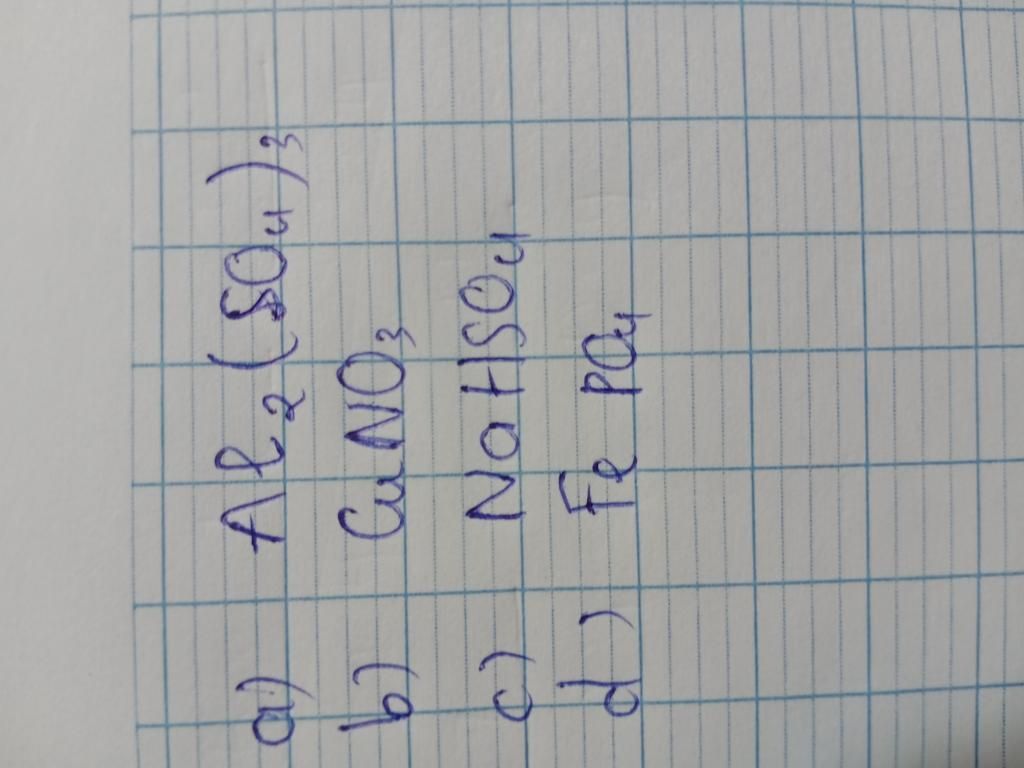 a) Al₂(SO₄)₃
b) CuNO₃
c) NaHSO₄
d) Fe PO₄